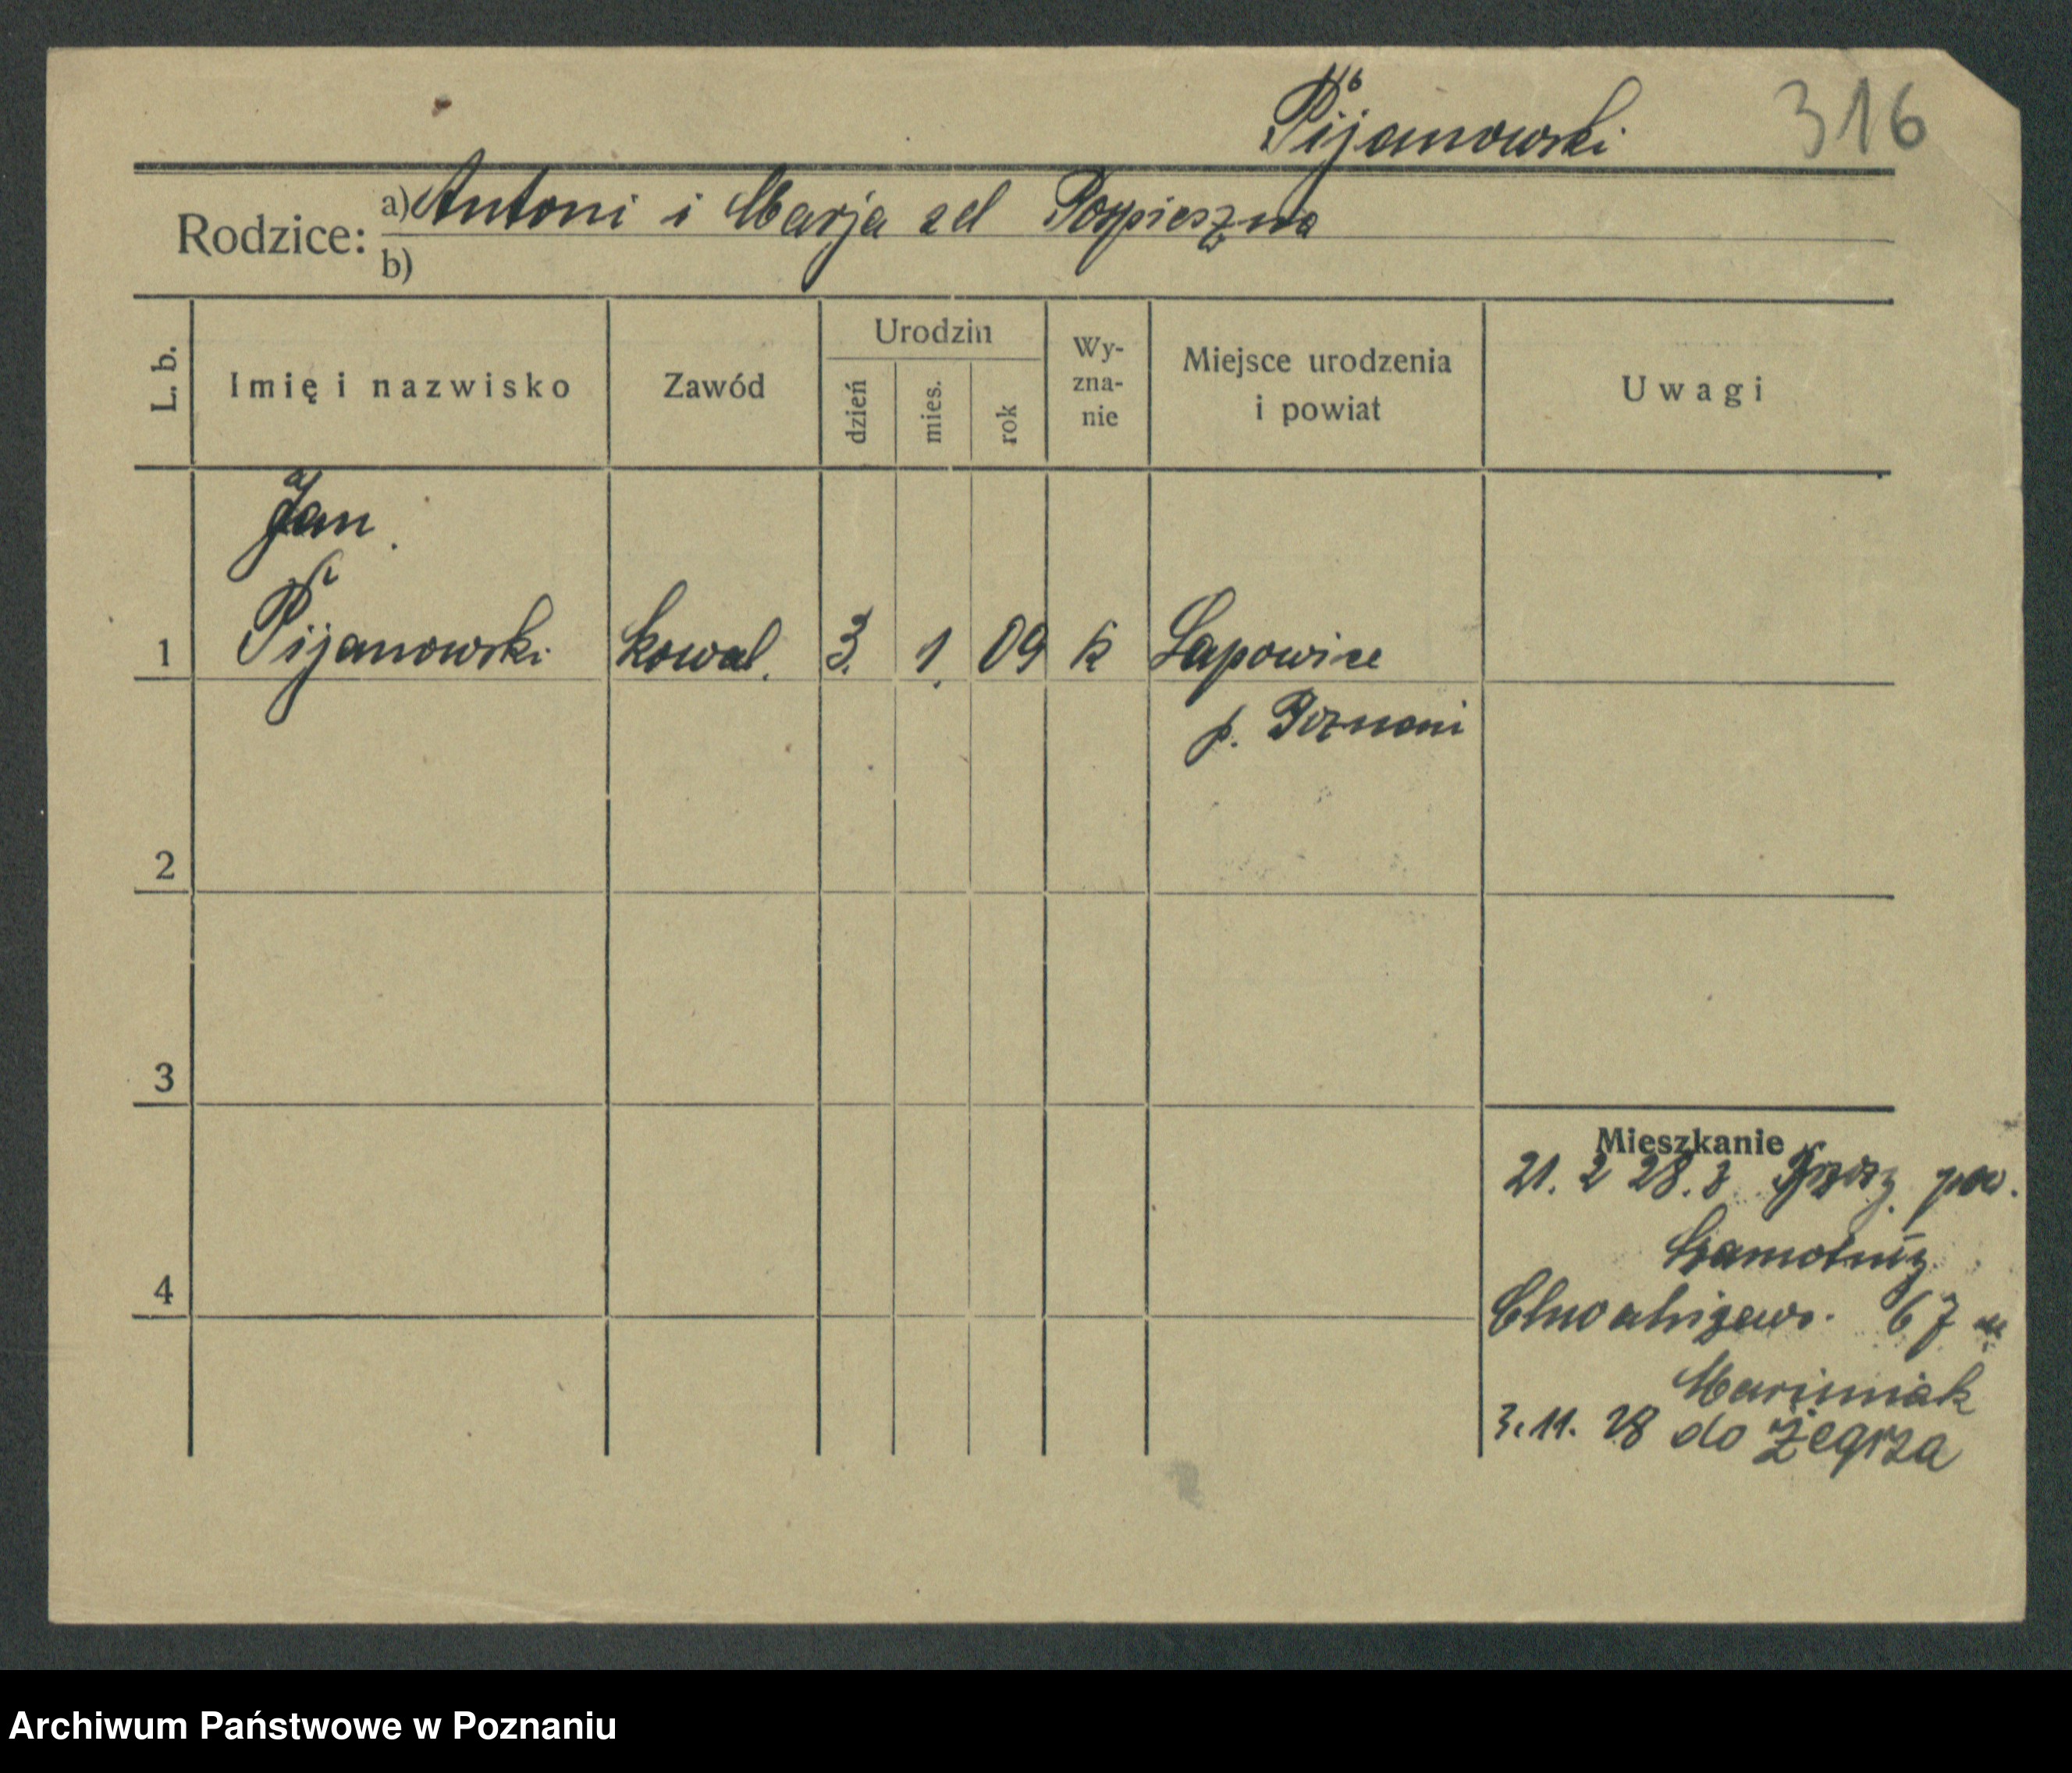 Pijanowski 316
Rodzice: a) Antoni i Marja zd Pospieszna
b)
L. b. Imię i nazwisko Zawód Urodzin dzień mies. rok Wy-zna-nie Miejsce urodzenia i powiat Uwagi
Jan
1 Pijanowski kowal. 3. 1. 09 k Łapowice
p. Poznani
2
3
Mieszkanie
21. 2 28. z pow.
4 Szamotuły
67 u
Marciniak
3. 11. 28 do Żegrza
Archiwum Państwowe w Poznaniu